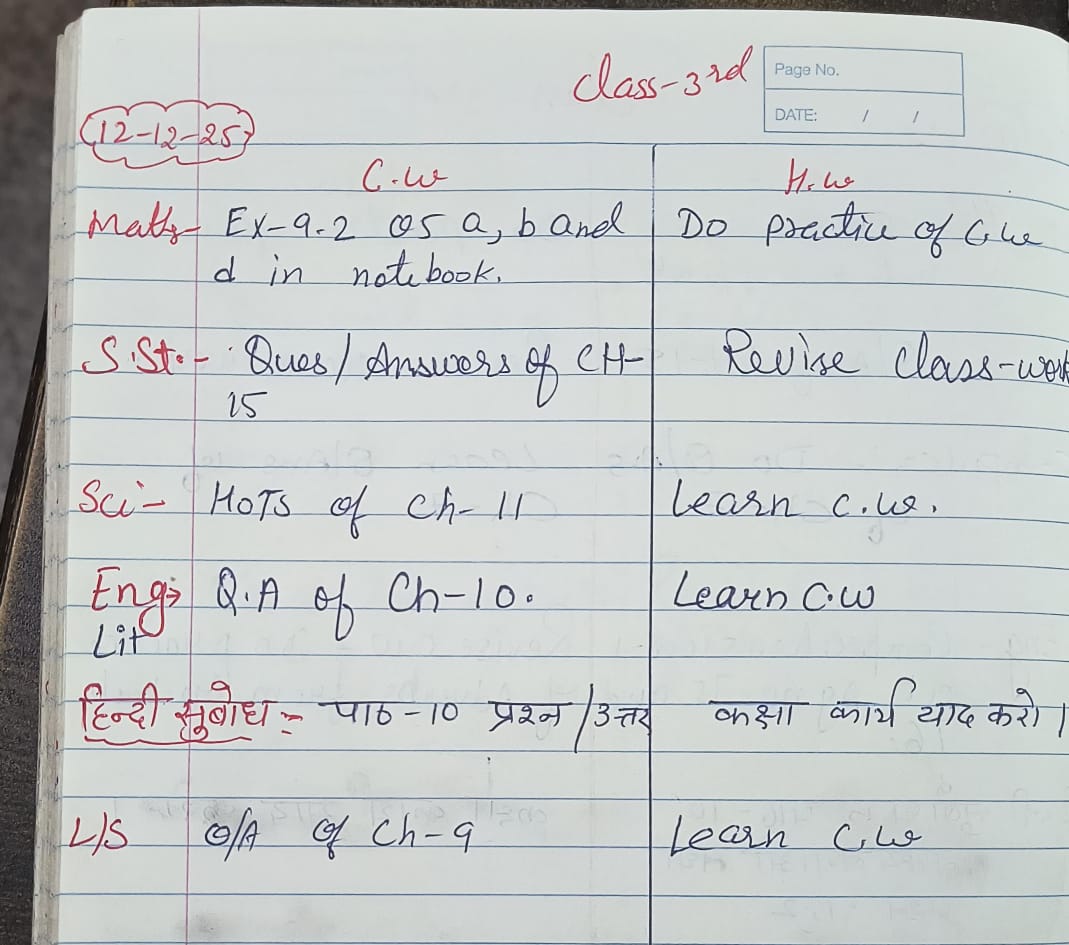 class-3rd
Page No.
DATE: / /
12-12-25
C.w H.w
Maths- Ex-9.2 Q5 a, b and Do practice of C.w
d in notebook.
S.St.- Ques/Answers of CH- Revise class-work
15
Sci- HOTS of Ch-11 Learn C.w.
Eng- Q.A of Ch-10. Learn C.w
Lit
हिन्दी सुबोध:- पाठ-10 प्रश्न/उत्तर कक्षा कार्य याद करो।
L/S Q/A of Ch-9 Learn C.w